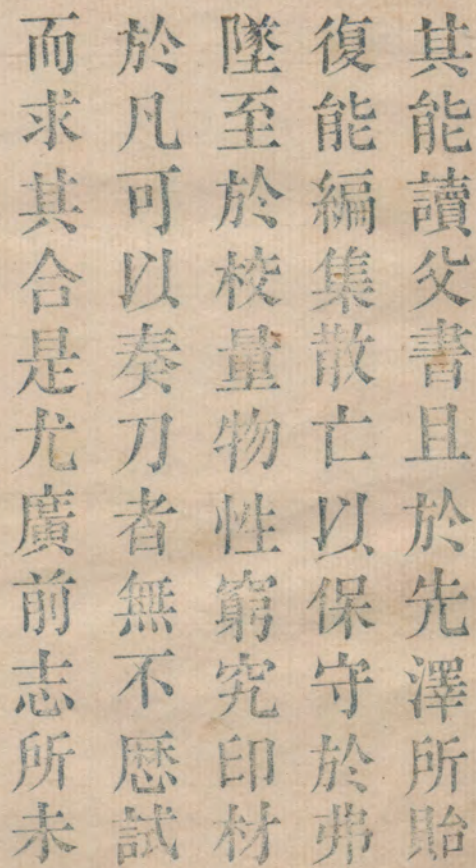 其能讀父書且於先澤所貽
復能編集散亡以保守於弗
墜至於校量物性窮究印材
於凡可以奏刀者無不歷試
而求其合是尤廣前志所未